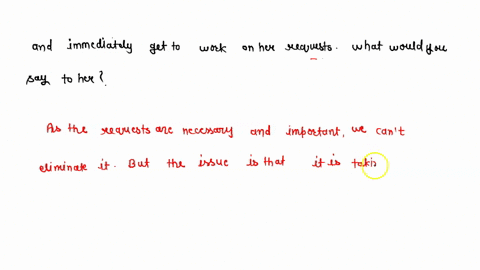 and immediately get to work on her requests. What would you
say to her?
As the requests are necessary and important, we can't
eliminate it. But the issue is that it is taki